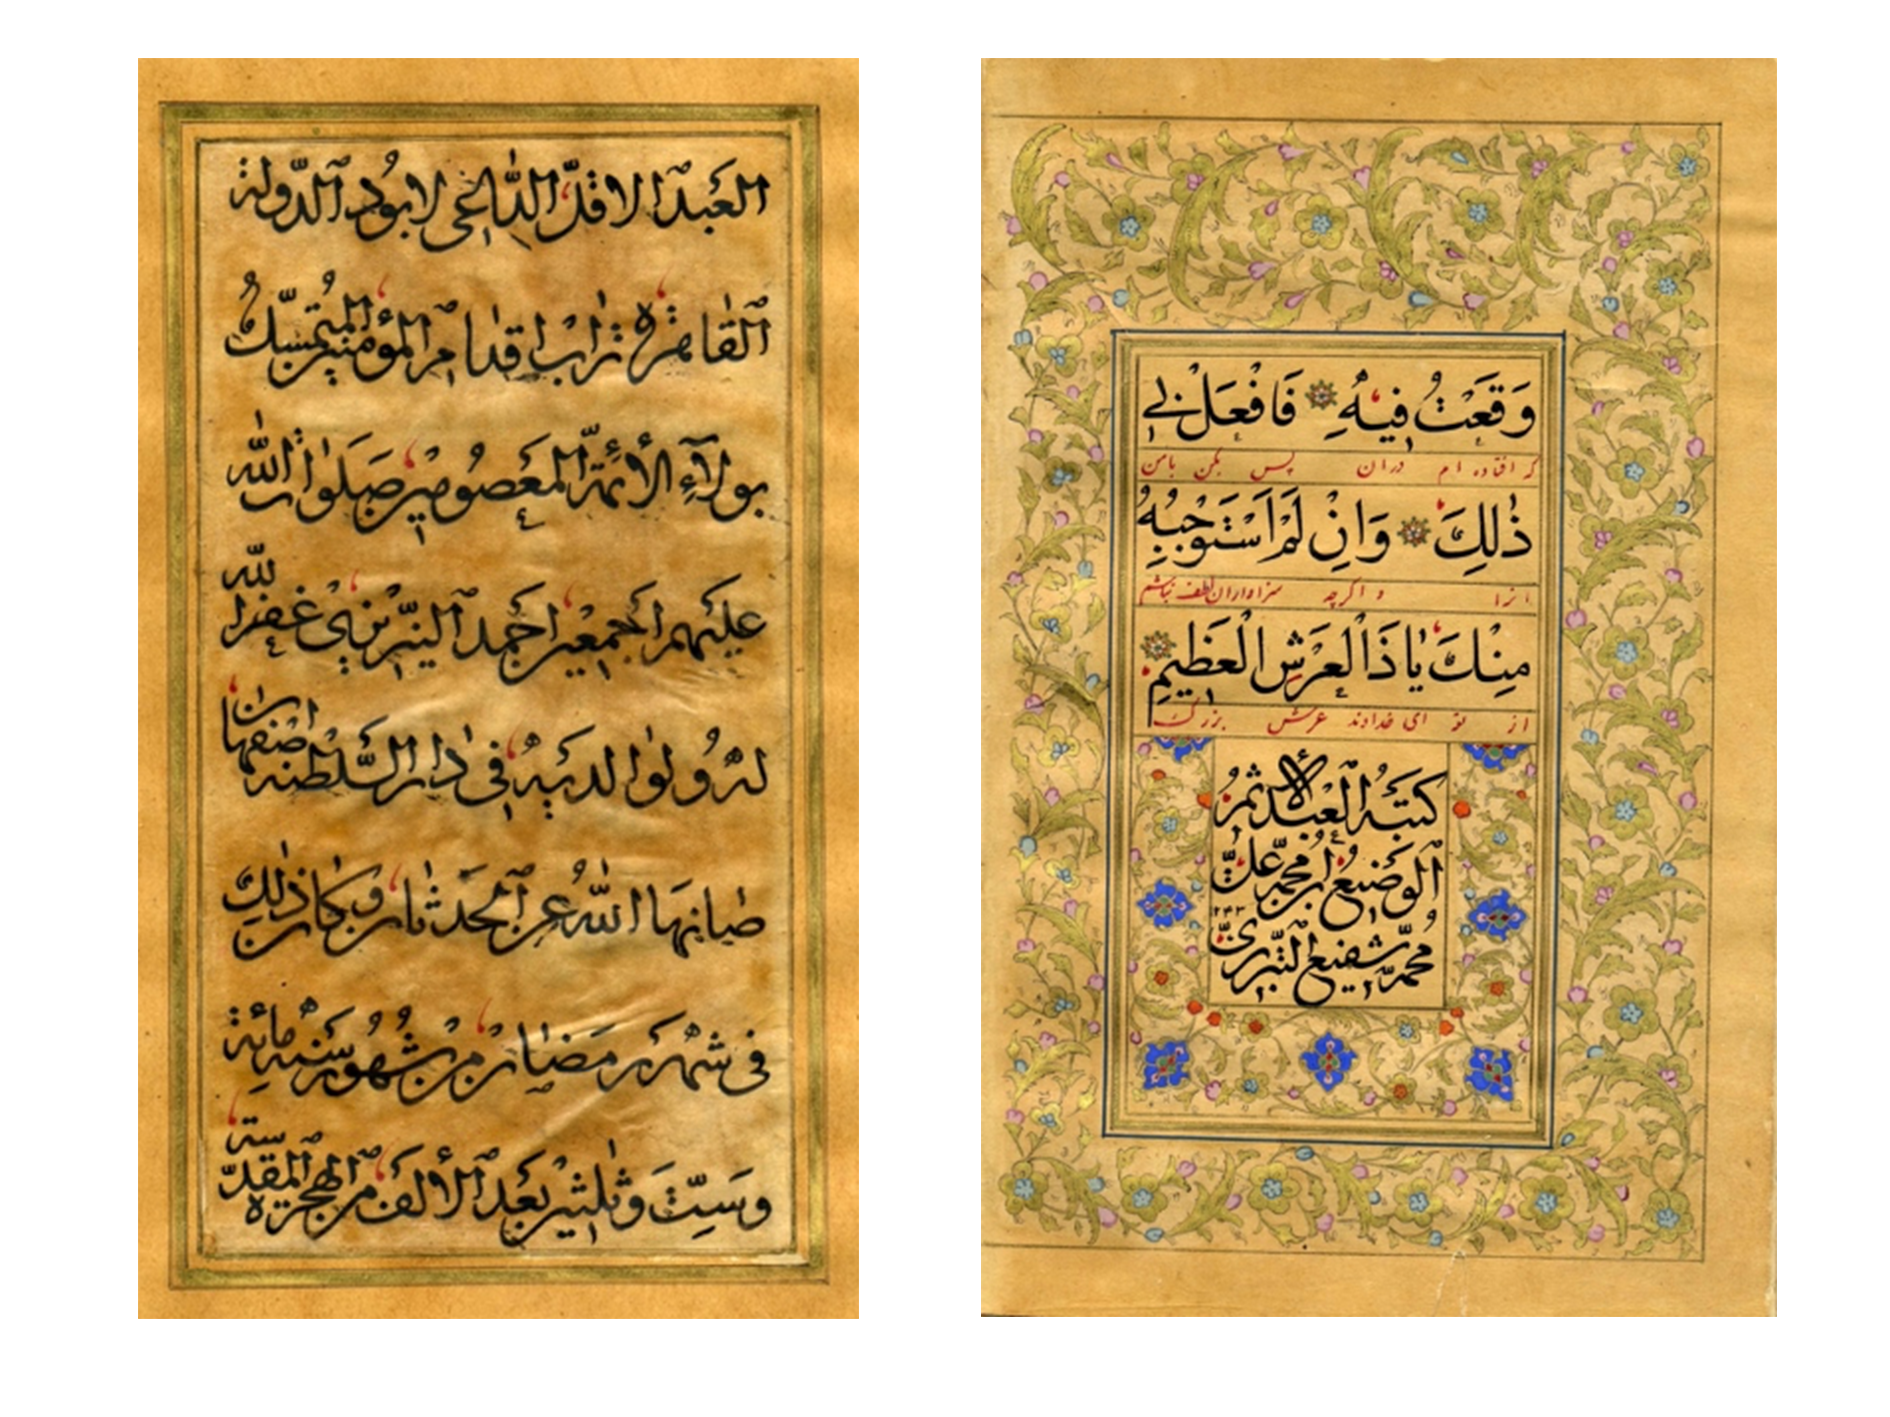 العبد الاقلّ الدّاعى لابود الدّولة
القاهرة تراب اقدام المؤمنين المتمسّك
بولآء الأئمّة المعصومين صلوات اللّه
عليهم اجمعين احمد النّيريزى غفر اللّه
له ولوالديه فى دار السّلطنه اصفهان
صانها اللّه عن الحدثان وكان ذلك
فى شهر رمضان من شهور سنه مائة
وستّ وثلثين بعد الألف من الهجرة المقدّسة
وَقَعْتُ فيهِ فَافْعَلْ بى
كه افتاده ام دران پس بكن بامن
ذٰلِكَ وَاِنْ لَمْ اَسْتَوْجِبْهُ
انرا و اگرچه سزاواران لطف نباشم
مِنْكَ يا ذَا الْعَرْشِ الْعَظيمِ
از تو اى خداوند عرش بزرگ
كتبه العبد الأثم
الوضيع ابن محمّد علىّ
محمّد شفيع التّبريزى